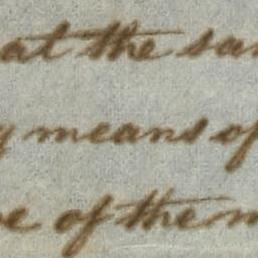 at the sa
y means of
e of the m